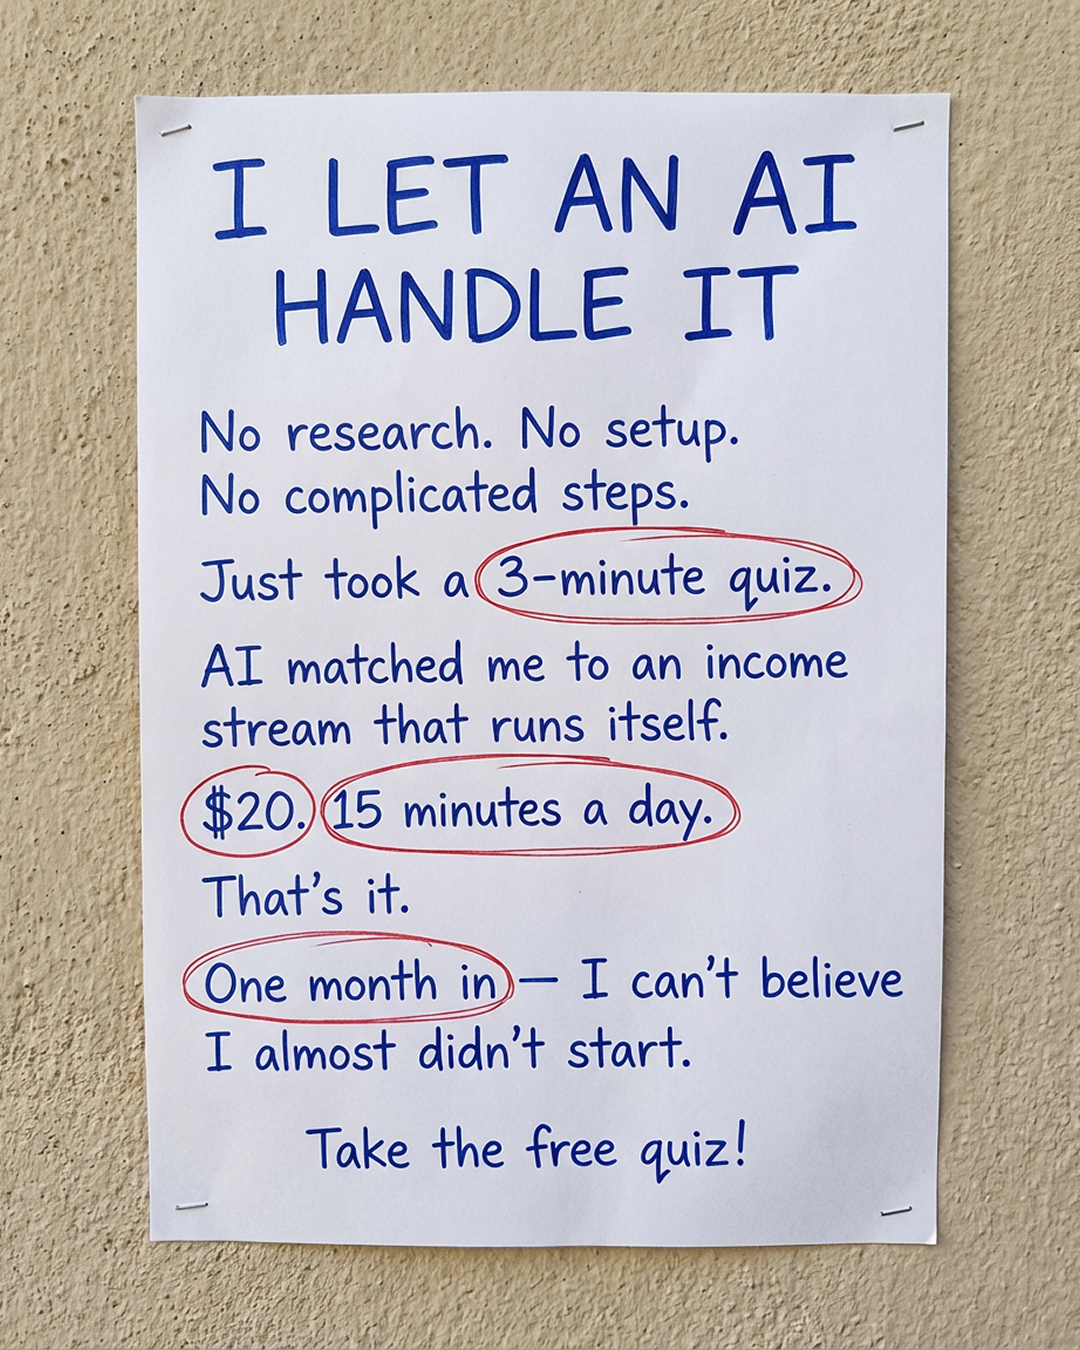 I LET AN AI
HANDLE IT
No research. No setup.
No complicated steps.
Just took a 3-minute quiz.
AI matched me to an income
stream that runs itself.
$20. 15 minutes a day.
That's it.
One month in — I can't believe
I almost didn't start.
Take the free quiz!